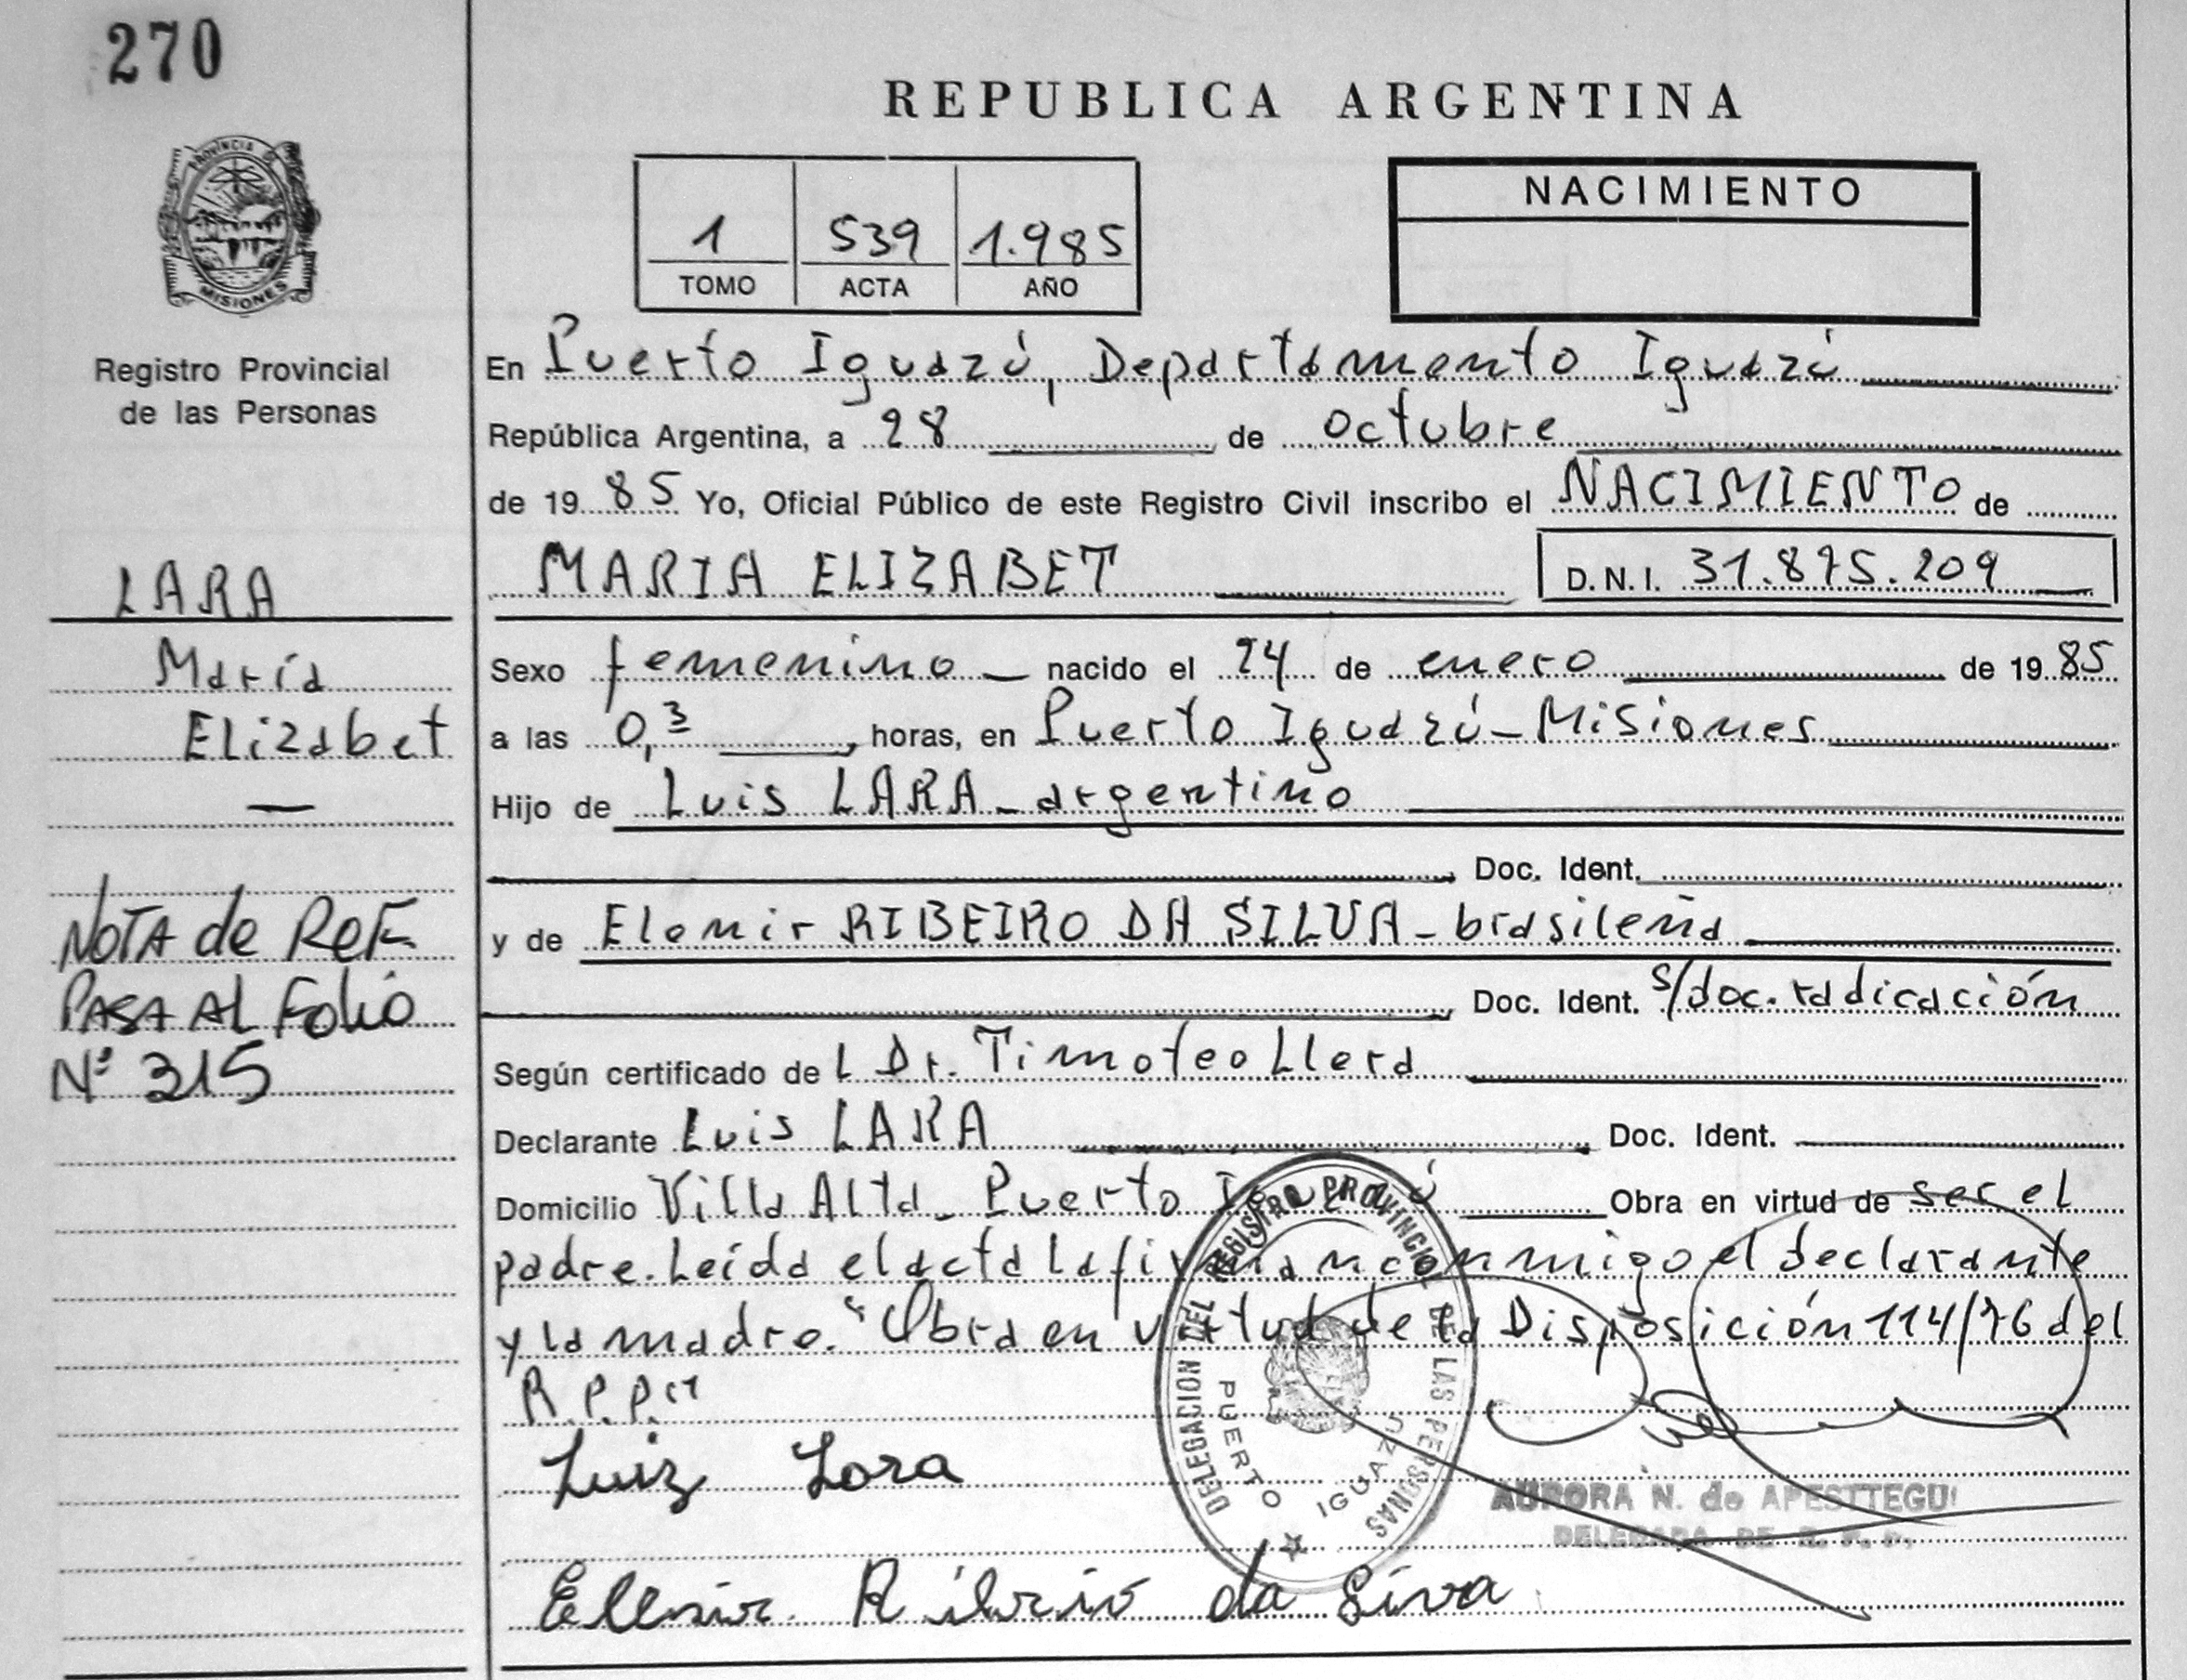 270
REPUBLICA ARGENTINA
PROVINCIA DE
MISIONES
Registro Provincial
de las Personas
1 539 1.985
TOMO ACTA AÑO
NACIMIENTO
En Puerto Iguazú, Departamento Iguazú
República Argentina, a 28 de octubre
de 19 85 Yo, Oficial Público de este Registro Civil inscribo el NACIMIENTO de
MARIA ELIZABET D.N.I. 31.875.209
LARA
María
Elizabet
—
NOTA de REF.
PASA AL Folio
Nº 315
Sexo femenino — nacido el 24 de enero de 19 85
a las 0,3 , horas, en Puerto Iguazú - Misiones
Hijo de Luis LARA - argentino
Doc. Ident.
y de Elenir RIBEIRO DA SILVA - brasileña
Doc. Ident. s/doc. radicación
Según certificado de l Dr. Timoteo Llera
Declarante Luis LARA Doc. Ident.
Domicilio Villa Alta - Puerto Iguazú Obra en virtud de ser el
padre. Leída el acta la firman conmigo el declarante
y la madre. "Obra en virtud de la Disposición 114/76 del
R.P.P."
Luiz Lora
DELEGACION DEL REGISTRO PROVINCIAL DE LAS PERSONAS
PUERTO IGUAZU
AURORA N. de APESTTEGUI
DELEGADA DE R. P. P.
Ellenir Ribrio da Siva